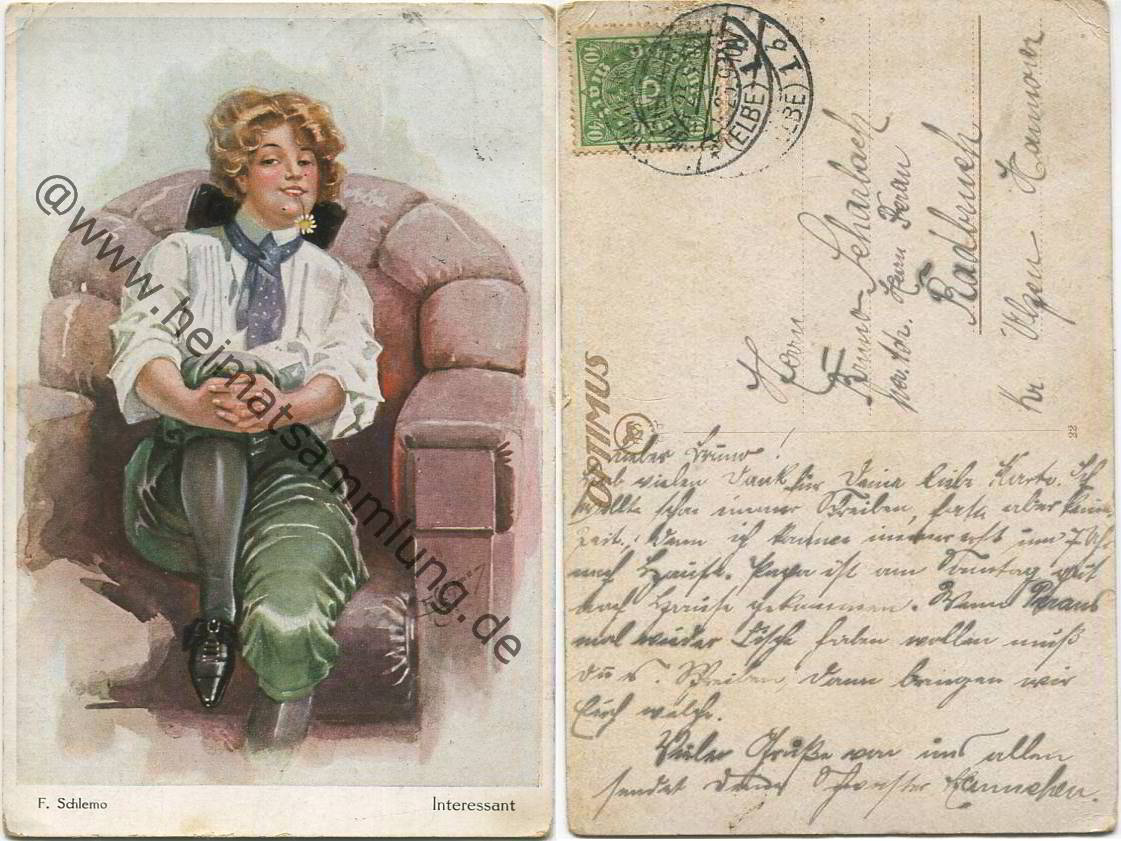 F. Schlemo
Interessant
@www.heimatsammlung.de
40 40
(ELBE) 1
(ELBE) b 1
OPTIMUS
22
Herrn
Bruno Scharbach
Herrn Peran
Radbruch
Kr Ülzen Hannover
Lieber Bruno!
Hab vielen Dank für Deine liebe Karte. Ich
wollte schon immer Schreiben, hatte aber keine
Zeit, denn ich komme immer erst um 7 Uhr
nach Hause. Papa ist am Sonntag gut
nach Hause gekommen. Wenn Perans
mal wieder Fische haben wollen muß
du es Schreiben, dann bringen wir
Euch welche.
Viele Grüße von uns allen
sendet Deine Schwester Hannchen.